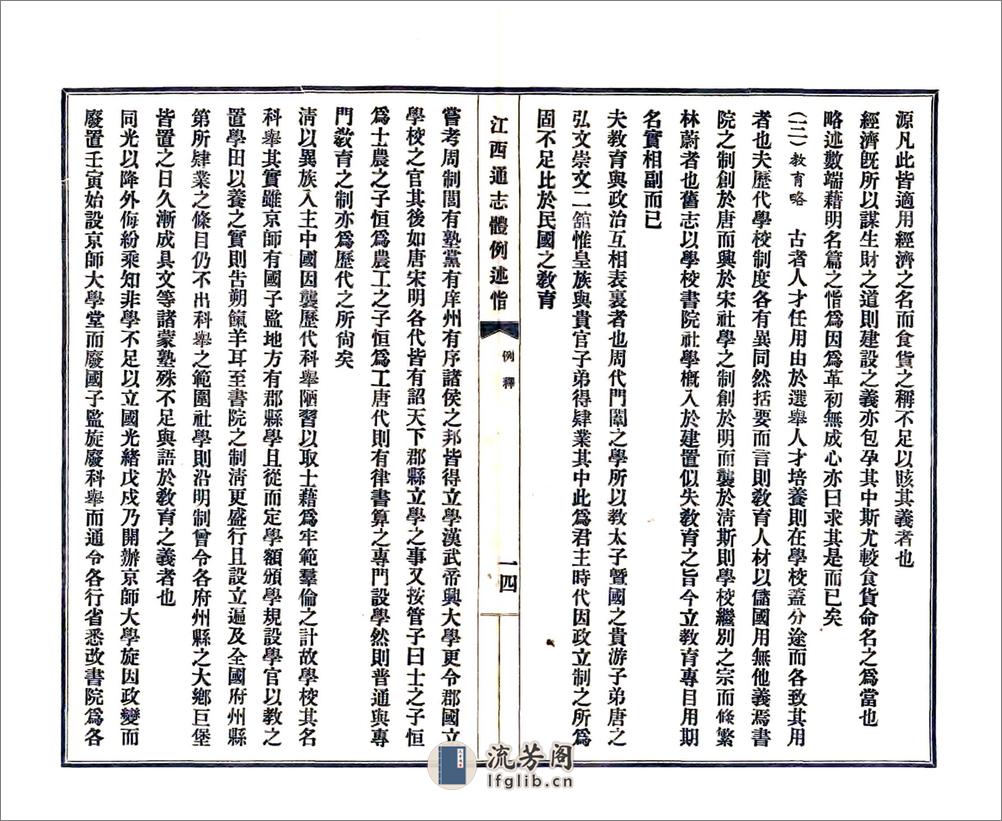 源凡此皆適用經濟之名而食貨之稱不足以賅其義者也
經濟旣所以謀生財之道則建設之義亦包孕其中斯尤較食貨命名之爲當也
略述數端藉明名篇之恉爲因爲革初無成心亦曰求其是而已矣
(二)教育略 古者人才任用由於選舉人才培養則在學校蓋分途而各致其用
者也夫歷代學校制度各有異同然括要而言則敎育人材以儲國用無他義焉書
院之制創於唐而興於宋社學之制創於明而襲於淸斯則學校繼別之宗而條繁
林蔚者也舊志以學校書院社學槪入於建置似失敎育之旨今立敎育專目用期
名實相副而已
夫敎育與政治互相表裏者也周代門闈之學所以敎太子曁國之貴游子弟唐之
弘文崇文二舘惟皇族與貴官子弟得肄業其中此爲君主時代因政立制之所爲
固不足比於民國之敎育
江西通志體例述恉
例釋
一四
嘗考周制閭有塾黨有庠州有序諸侯之邦皆得立學漢武帝興大學更令郡國立
學校之官其後如唐宋明各代皆有詔天下郡縣立學之事又按管子曰士之子恒
爲士農之子恒爲農工之子恒爲工唐代則有律書算之專門設學然則普通與專
門敎育之制亦爲歷代之所尙矣
淸以異族入主中國因襲歷代科舉陋習以取士藉爲牢範羣倫之計故學校其名
科舉其實雖京師有國子監地方有郡縣學且從而定學額頒學規設學官以敎之
置學田以養之實則吿朔餼羊耳至書院之制淸更盛行且設立遍及全國府州縣
第所肄業之條目仍不出科舉之範圍社學則沿明制曾令各府州縣之大鄕巨堡
皆置之日久漸成具文等諸蒙塾殊不足與語於敎育之義者也
同光以降外侮紛乘知非學不足以立國光緒戊戌乃開辦京師大學旋因政變而
廢置壬寅始設京師大學堂而廢國子監旋廢科舉而通令各行省悉改書院爲各
流芳阁
lfglib.cn